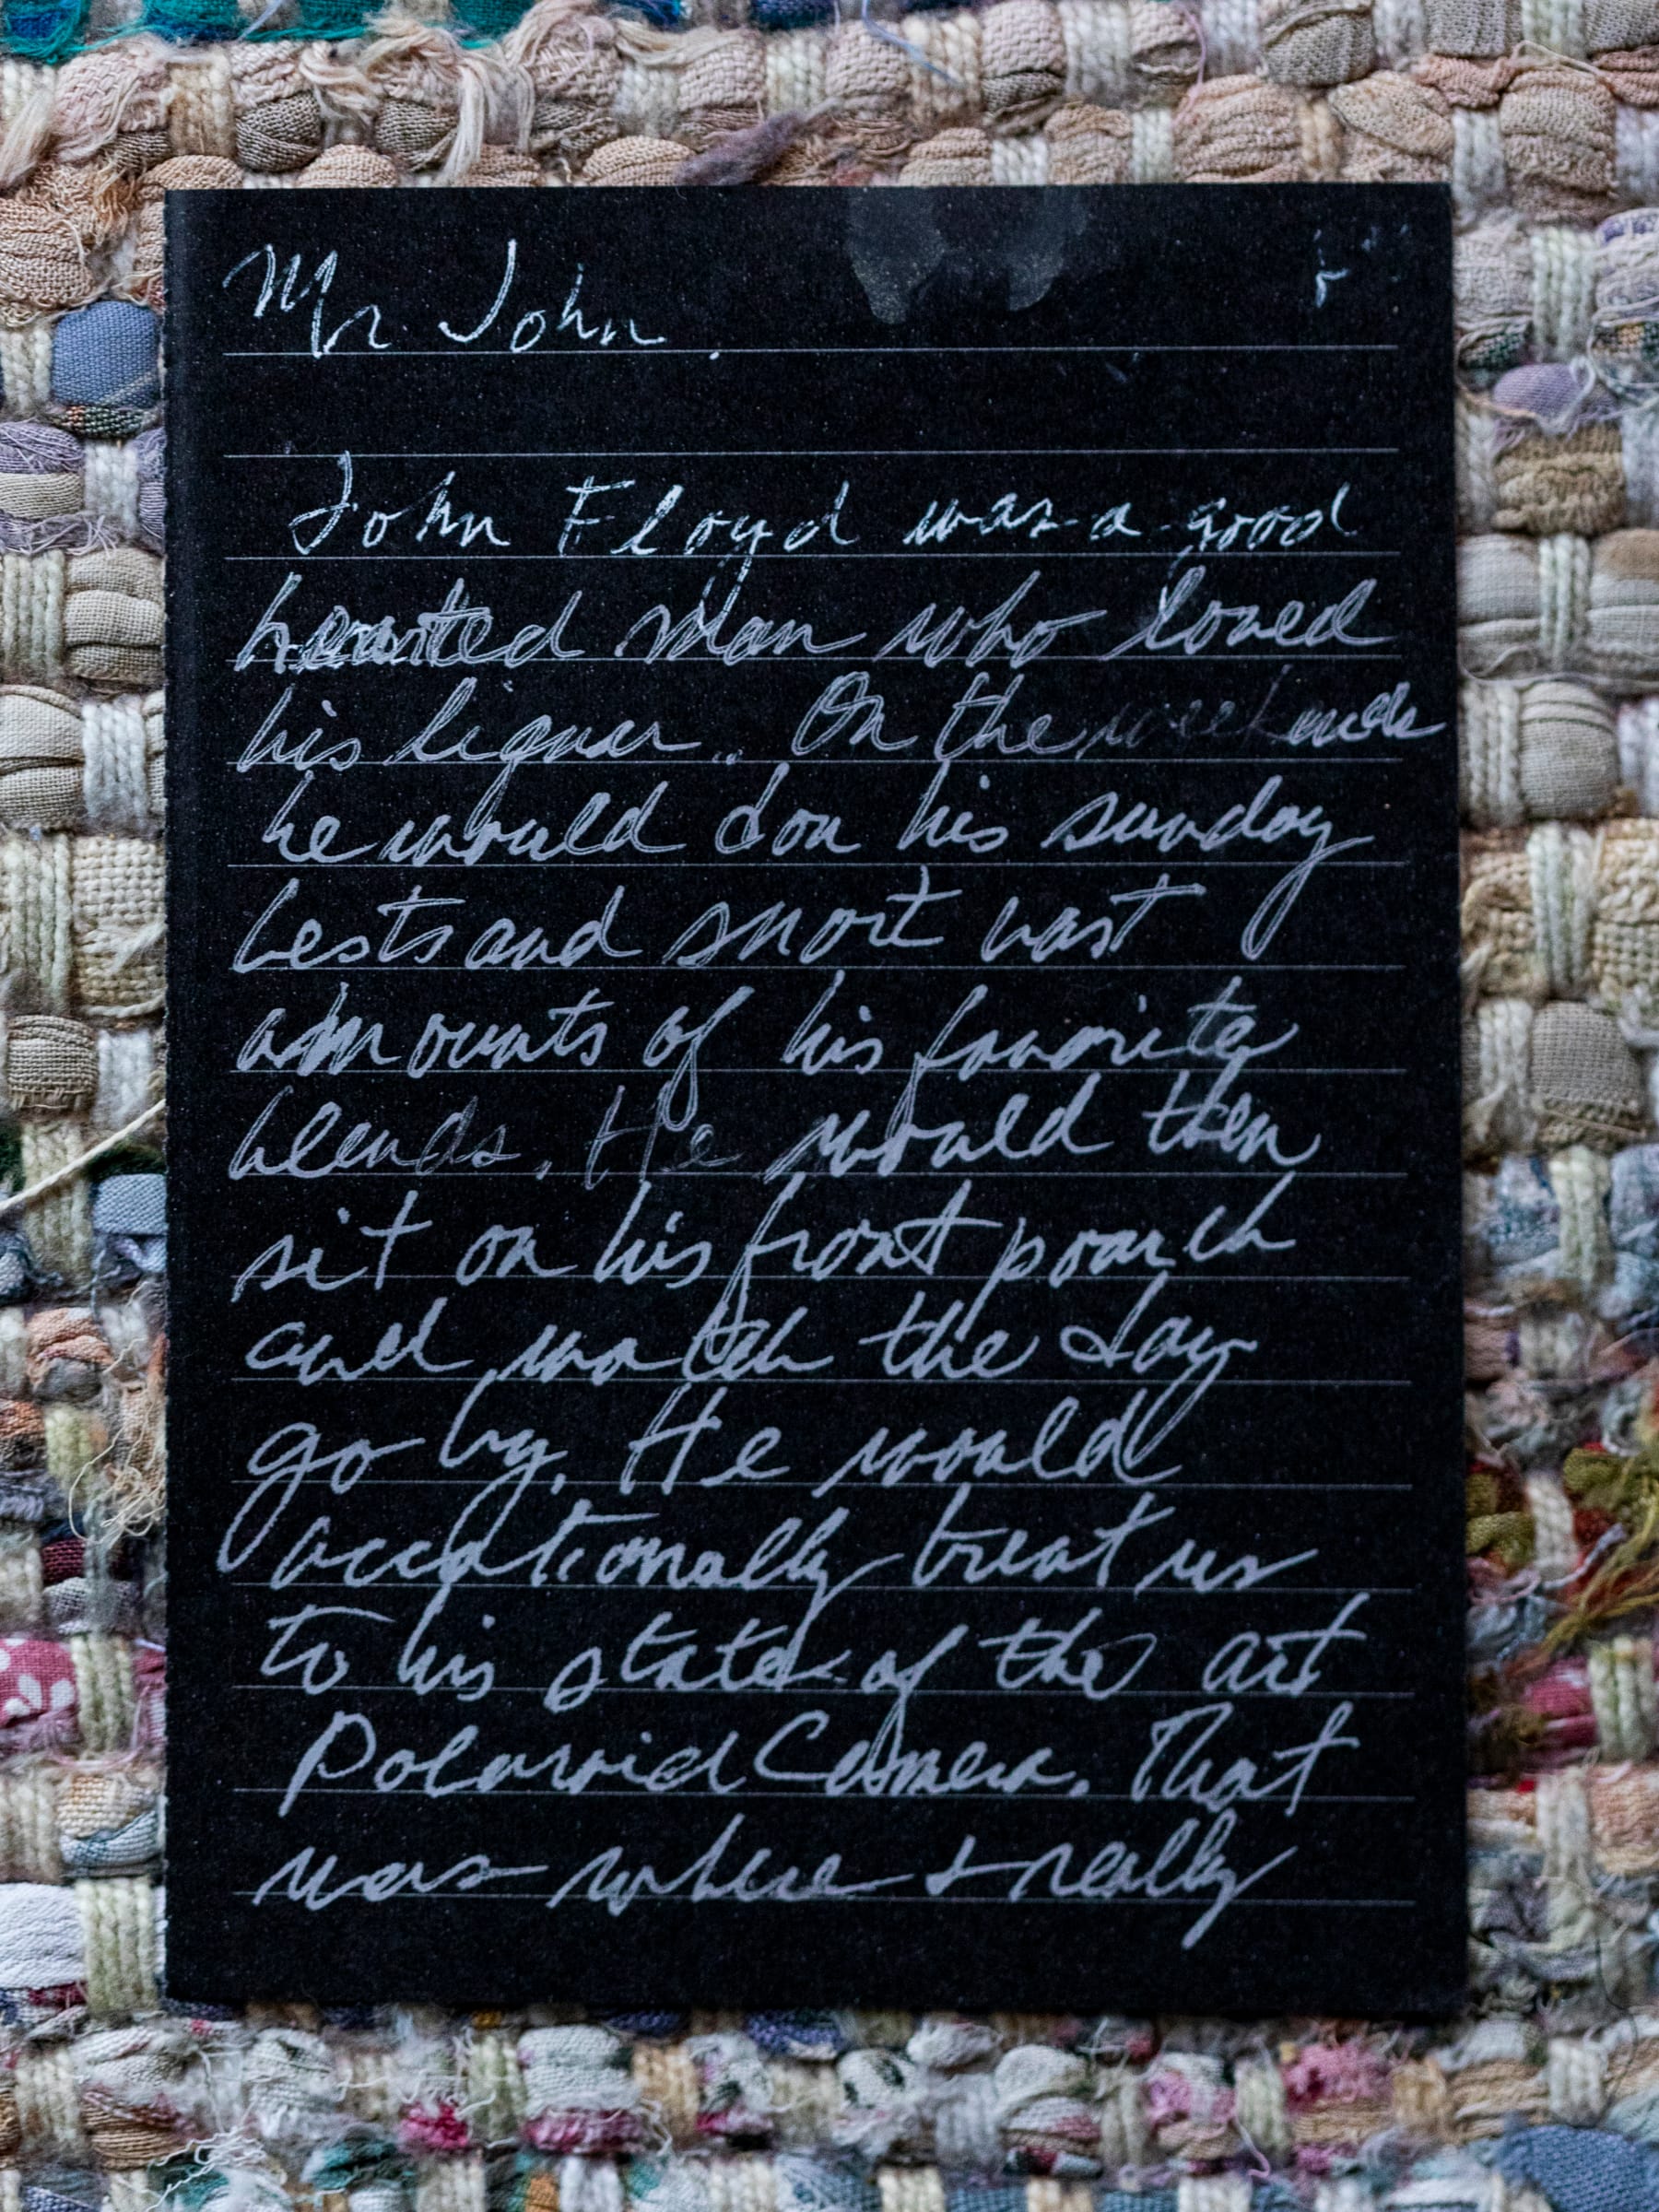 Mr. John.
John Floyd was a good
hearted man who loved
his liquer.. On the weekends
he would don his sunday
bests and snort vast
amounts of his favorite
blends. He would then
sit on his front poarch
and watch the day
go by. He would
occationally treat us
to his state of the art
Polaroid Camera. That
was where I really